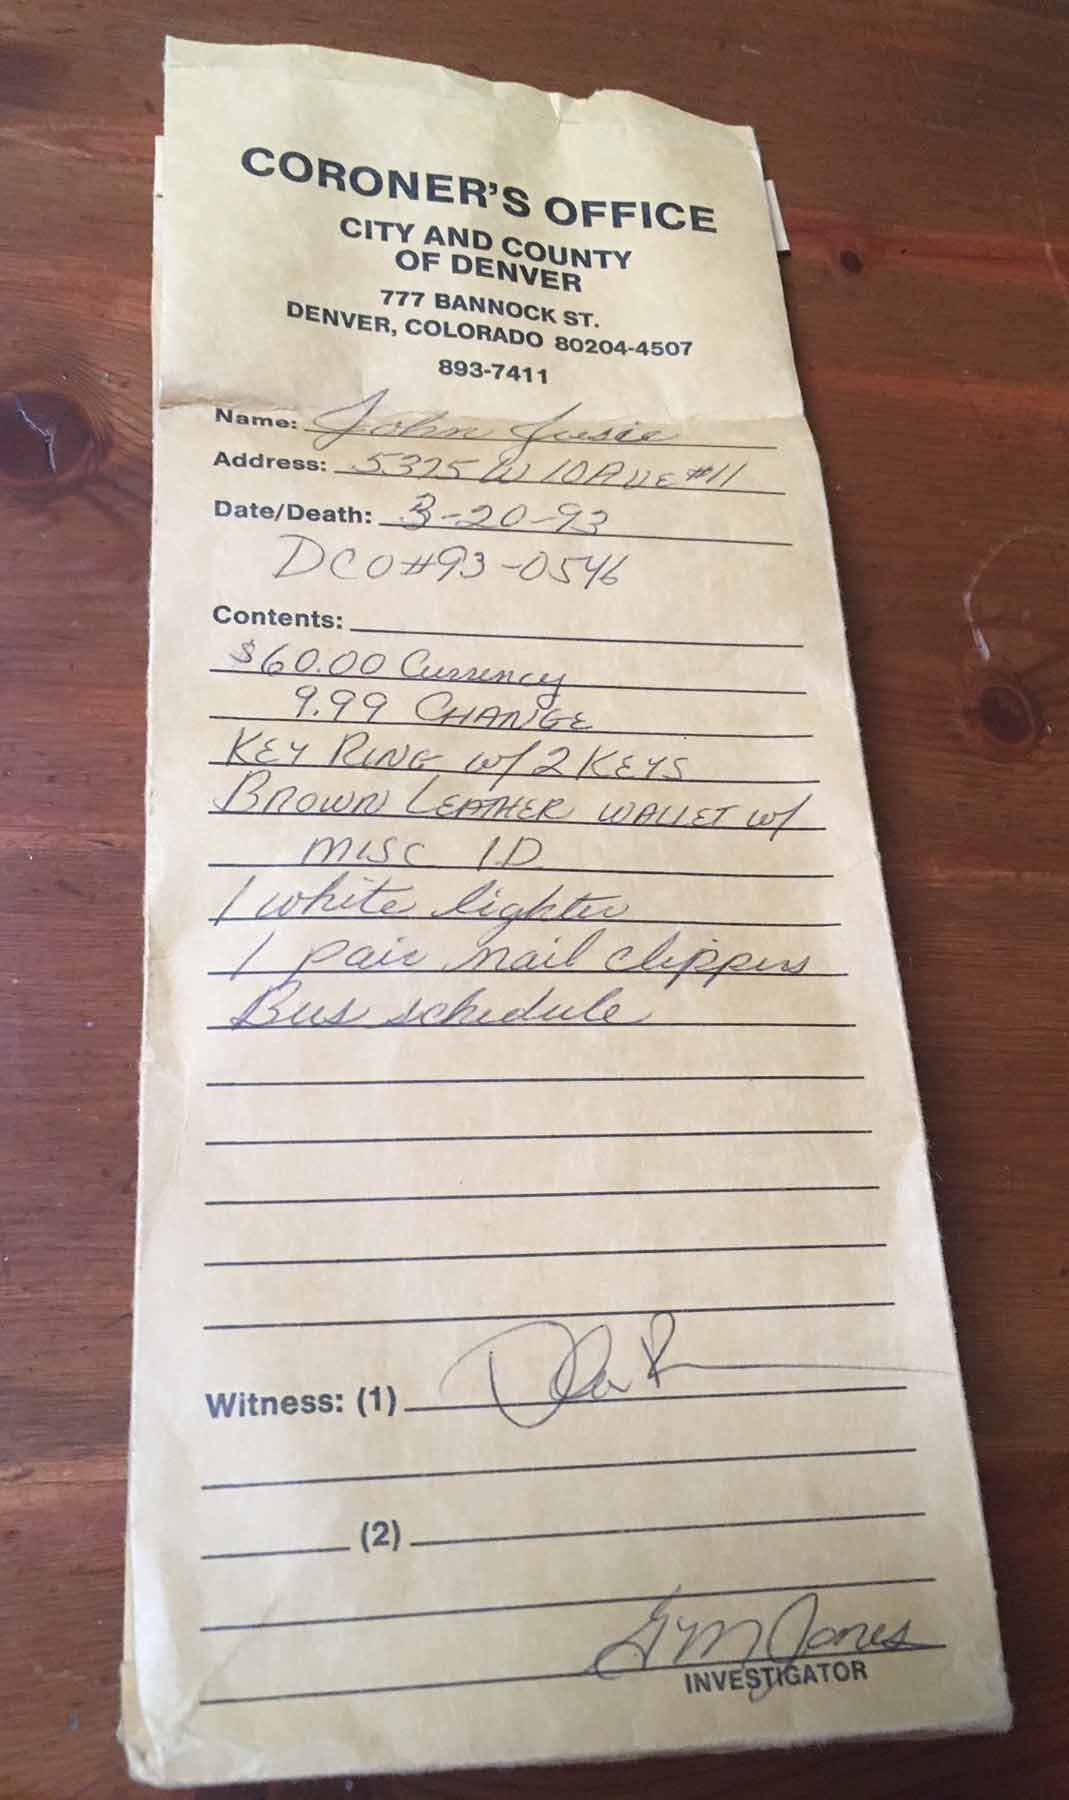 CORONER'S OFFICE
CITY AND COUNTY
OF DENVER
777 BANNOCK ST.
DENVER, COLORADO 80204-4507
893-7411
Name: John Jusie
Address: 5375 W 10 AVE #11
Date/Death: 3-20-93
DCO#93-0546
Contents:
$60.00 Currency
9.99 CHANGE
KEY RING w/ 2 KEYS
BROWN LEATHER WALLET w/
MISC I.D
1 white lighter
1 pair nail clippers
Bus schedule
Witness: (1)
(2)
GM Jones
INVESTIGATOR